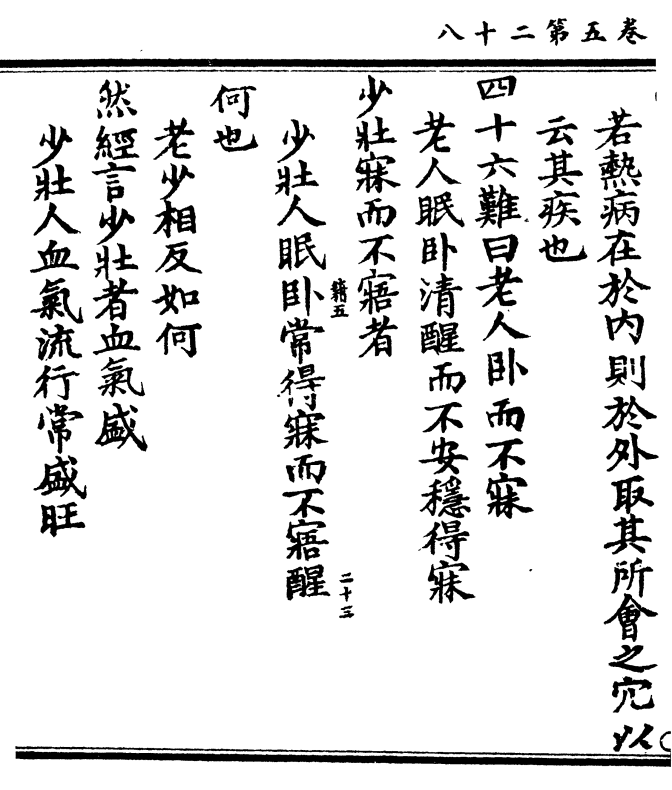 卷五第二十八
若熱病在於內則於外取其所會之穴以
云其疾也
四十六難曰老人卧而不寐
老人眠卧清醒而不安穩得寐
少壯寐而不寤者
籍五
二十三
少壯人眠卧常得寐而不寤醒
何也
老少相反如何
然經言少壯者血氣盛
少壯人血氣流行常盛旺